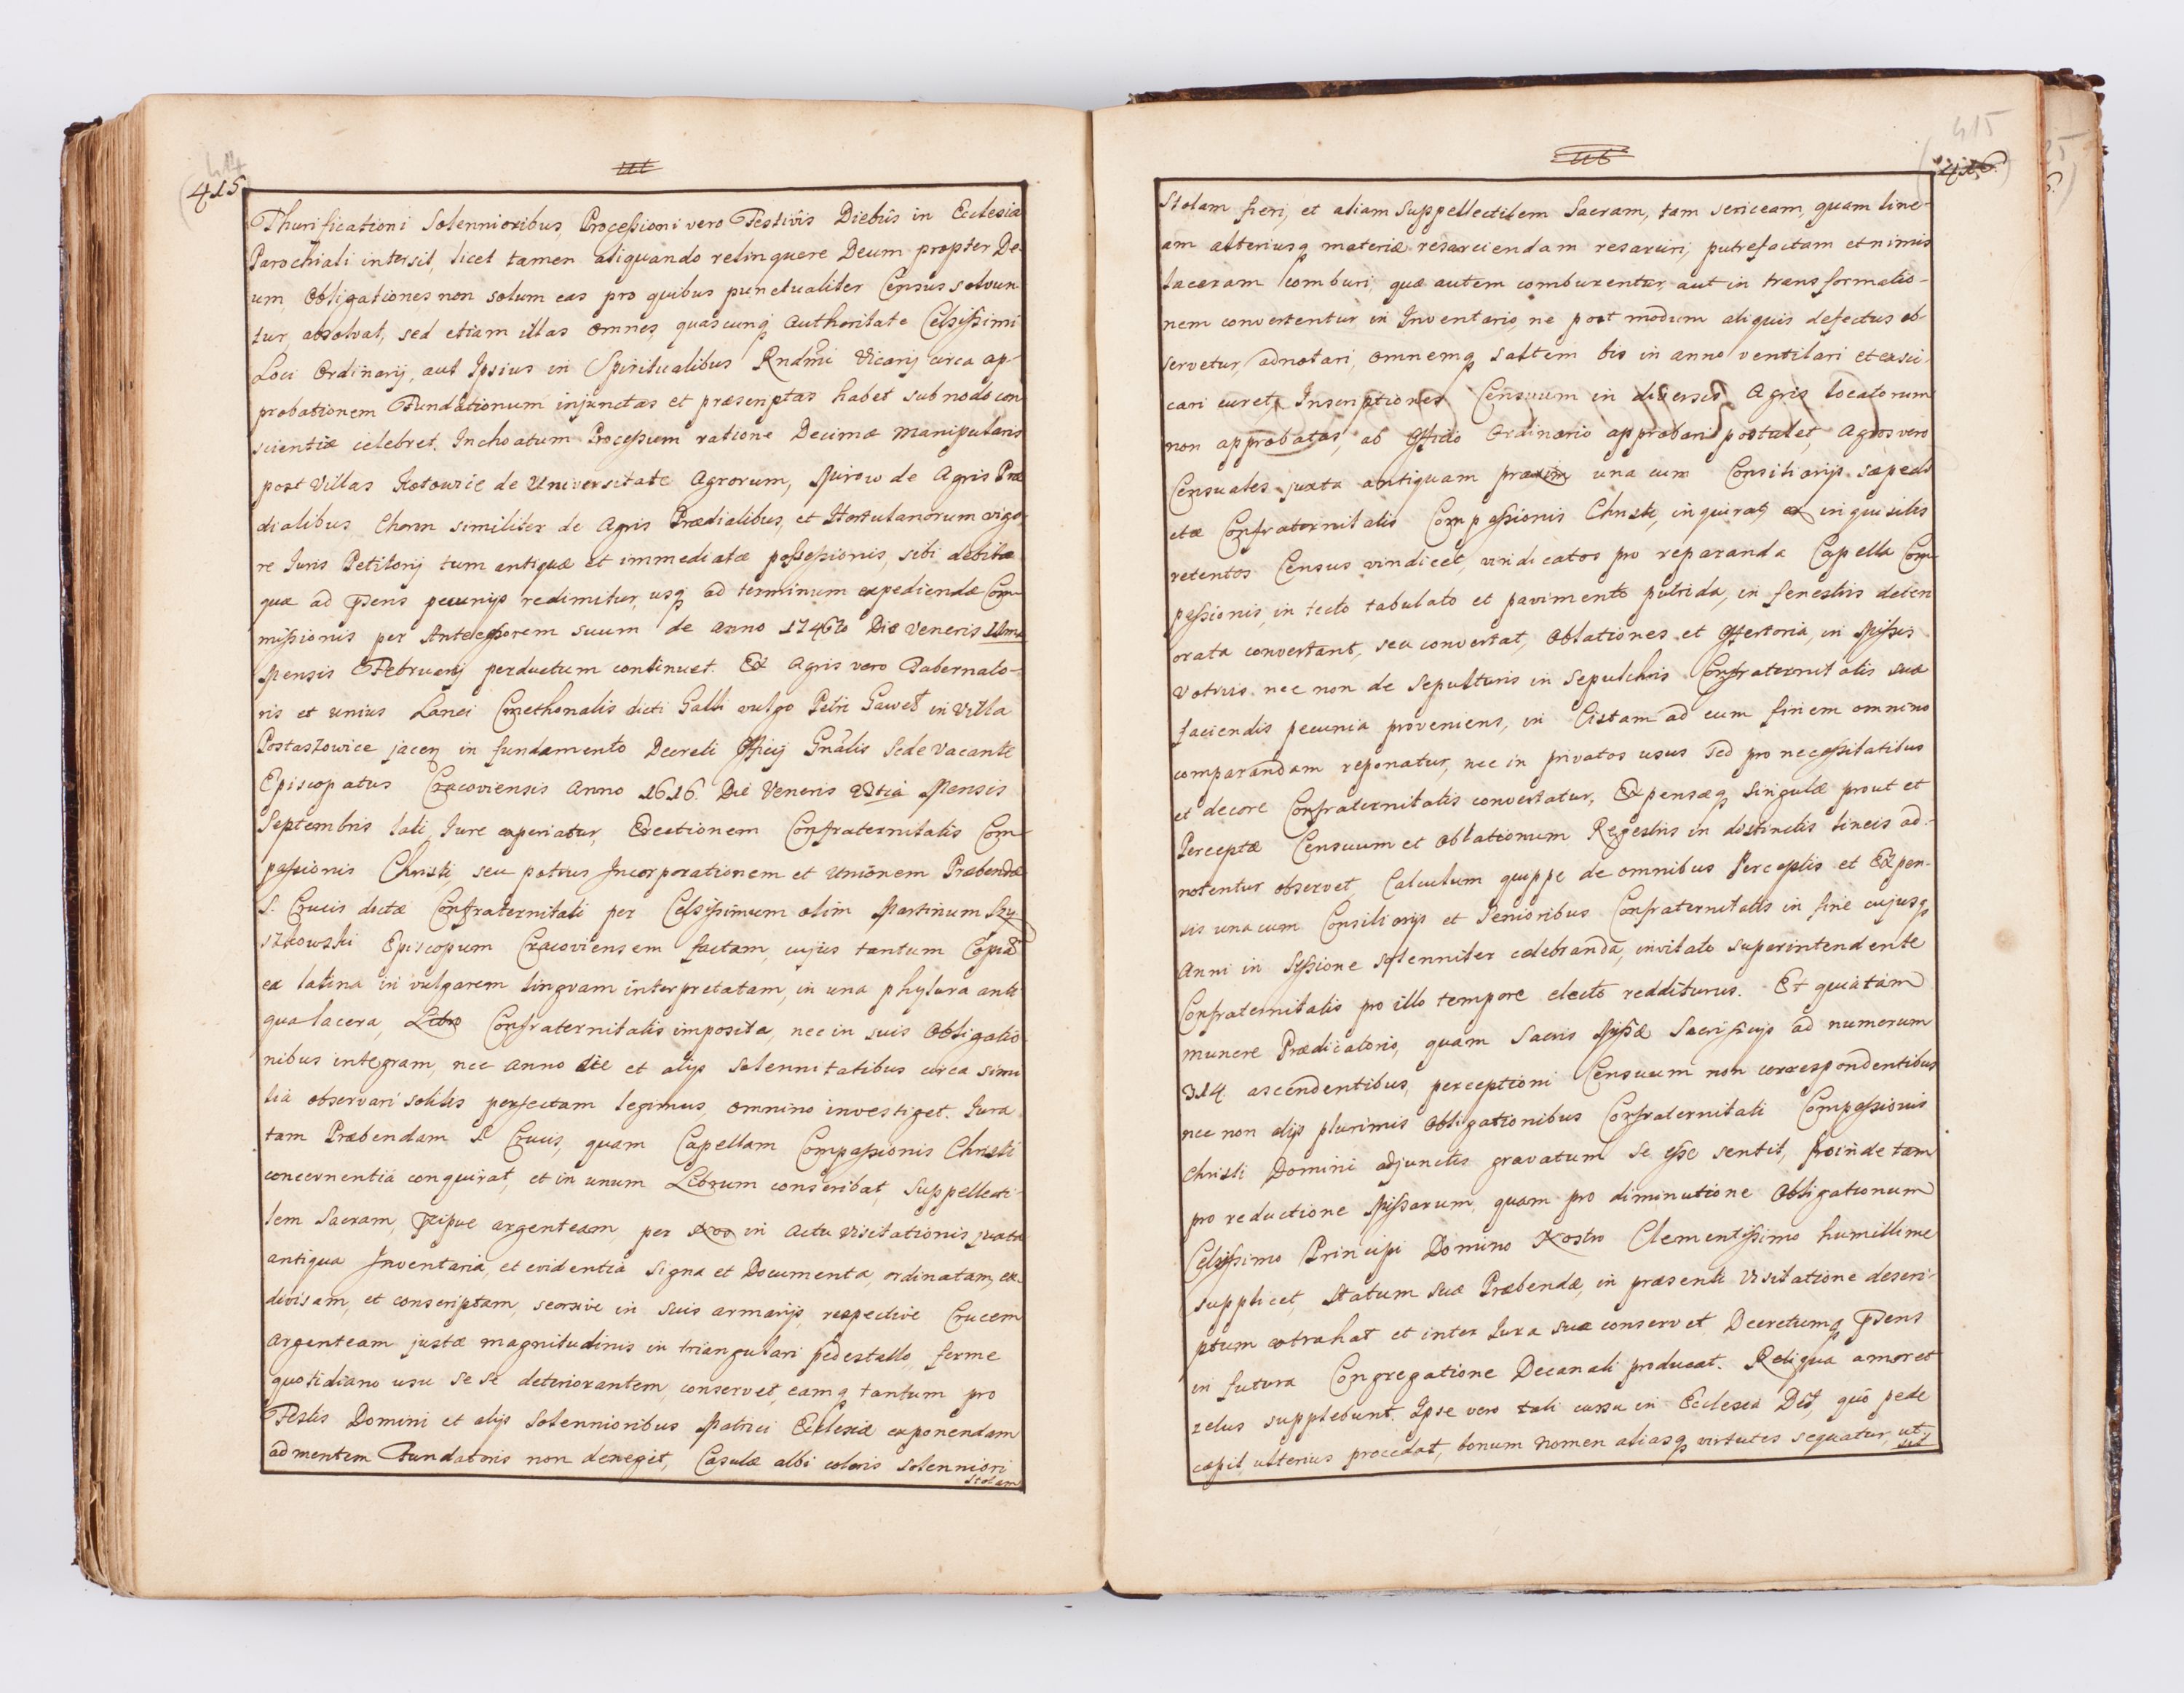 414
415
Thurificationi Solennioribus, Processioni vero Festivis Diebus in Ecclesia
Parochiali intersit, licet tamen aliquando relinquere Deum propter De-
um, Obligationes non solum eas pro quibus punctualiter Census solvun
tur, absolvat, sed etiam illas omnes, quascunq Authoritate Celsissimi
Loci Ordinarij, aut Ipsius in Spiritualibus Rndmi Vicarij circa ap-
probationem Fundationum injunctas et præscriptas habet sub nodo con
scientiæ celebret. Inchoatum Processum ratione Decimæ Manipularis
post Villas Kotowice de Universitate Agrorum, Mirow de Agris Præ
dialibus, Choron similiter de Agris Prædialibus, et Hortulanorum vigo-
re Juris Petitorij tum antiquæ et immediatæ possessionis, sibi debitæ
quæ ad Psens pecunijs redimitur, usq ad terminum expediendæ Com-
missionis per Antecessorem suum de anno 1746to Die Veneris 11ma
Mensis Februarij perductum continuet. Ex Agris vero Tabernato-
ris et unius Lanei Cmethonalis dicti Galli vulgo Petri Gaweł in Villa
Postaszowice jacen in fundamento Decreti Officij Gnalis Sede Vacante
Episcopatus Cracoviensis Anno 1616. Die Veneris 23tia Mensis
Septembris lati, Jure experiatur, Erectionem Confraternitatis Com-
passionis Christi, seu potius Incorporationem et Unionem Præbendæ
S. Crucis dictæ Confraternitati per Celsissimum olim Martinum Szy
szkowski Episcopum Cracoviensem factam, cujus tantum Copia
ex latina in vulgarem linguam interpretatam, in una phylura anti
qua lacera, Libro Confraternitatis imposita, nec in suis Obligatio
nibus integram, nec anno die et alijs solennitatibus circa simi
lia observari solitis perfectam legimus, omnino investiget. Jura
tam Præbendam S. Crucis, quam Capellam Compassionis Christi
concernentia conquirat, et in unum Librum conscribat, Suppellecti-
lem Sacram, Pcipue argenteam, per Nos in Actu Visitationis juxta
antiqua Inventaria, et evidentia Signa et Documenta, ordinatam, ex
divisam, et conscriptam, seorsive in suis armarijs, respective Crucem
Argenteam justæ magnitudinis in triangulari pedestallo, ferme
quotidiano usu se se deteriorantem, conservet, eamq tantum pro
Festis Domini et alijs Solennioribus Matrici Ecclesiæ exponendam
ad mentem Fundatoris non denegit, Casulæ albi coloris solenniori
Stolam
415
416
Stolam fieri, et aliam Suppellectilem Sacram, tam sericeam, quam line-
am alteriusq materiæ resarciendam resarciri, putrefactam et nimis
laceram comburi, quæ autem comburentur, aut in transformatio-
nem convertentur, in Inventario, ne post modum aliquis defectus ob-
servetur, adnotari, omnemq saltem bis in anno ventilari et exsic-
cari curet, Inscriptiones Censuum in diversis Agris locatorum
non approbatas, ab Officio Ordinario approbari postulet, Agros vero
Censuales juxta antiquam praxim una cum Consiliarijs sæpedi
ctæ Confraternitatis Compassionis Christi, inquirat, ex inquisitis
retentos Census vindicet, vindicatos pro reparanda Capella Com-
passionis, in tecto tabulato et pavimento putrida, in fenestris deteri
orata convertant, seu convertat, Oblationes et Offertoria, in Missis
Votivis nec non de Sepulturis in Sepulchris Confraternitatis suæ
faciendis pecunia proveniens, in Cistam ad eum finem omnino
comparandam reponatur, nec in privatos usus sed pro necessitatibus
et decore Confraternitatis convertatur, Expensæq singulæ prout et
Perceptæ Censuum et Oblationum Regestris in distinctis lineis ad-
notentur observet, Calculum quippe de omnibus Perceptis et Expen-
sis una cum Consiliarijs et Senioribus Confraternitatis in fine cujusq
Anni in Sessione solenniter celebranda, invitato superintendente
Confraternitatis pro illo tempore electo redditurus. Et quia tam
munere Prædicatorio, quam Sacris Missæ Sacrificijs ad numerum
314 ascendentibus, perceptioni Censuum non correspondentibus
nec non alijs plurimis Obligationibus Confraternitati Compassionis
Christi Domini adjunctis gravatum se esse sentit, proinde tam
pro reductione Missarum, quam pro diminutione Obligationum
Celsissimo Principi Domino Nostro Clementissimo humillime
supplicet, Statum suæ Præbendæ, in præsenti Visitatione descri-
ptum extrahat et inter Jura sua conservet Decretumq Psens
in futura Congregatione Decanali producat. Reliqua amor et
zelus supplebunt. Ipse vero tali cursu in Ecclesia Dei, quô pede
cæpit, ulterius procedat, bonum nomen aliasq virtutes sequatur, ut